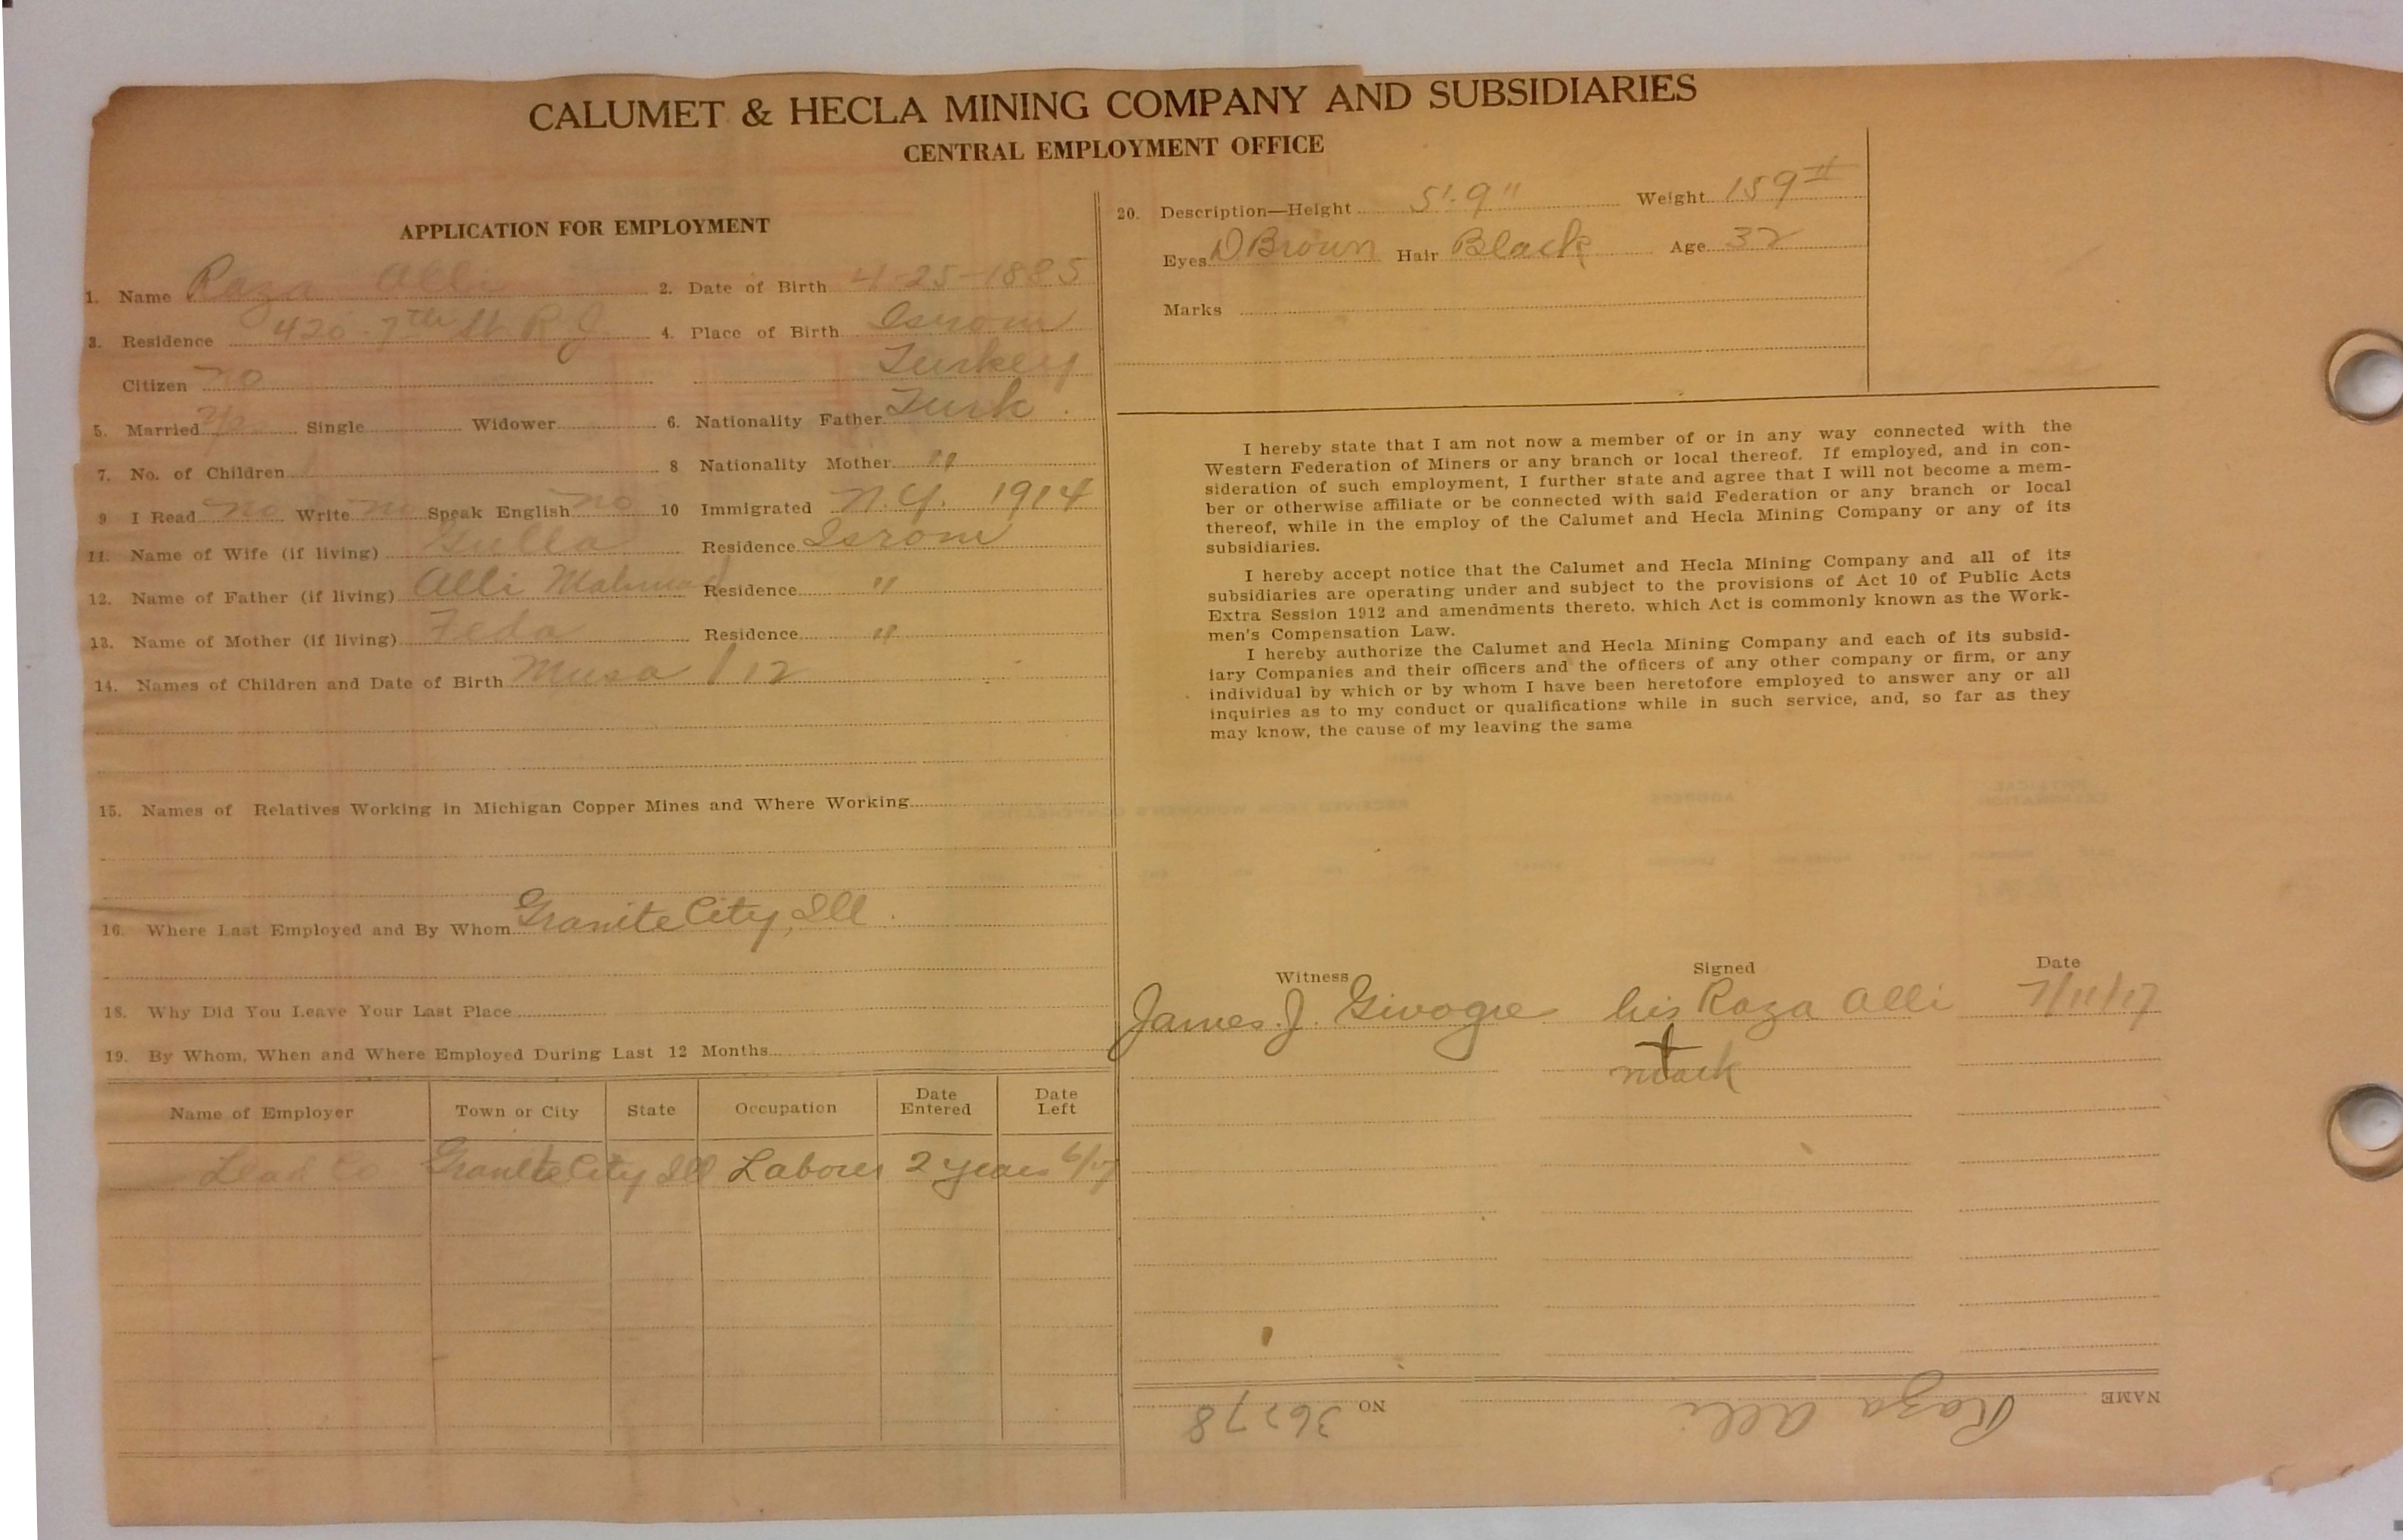 CALUMET & HECLA MINING COMPANY AND SUBSIDIARIES
CENTRAL EMPLOYMENT OFFICE
APPLICATION FOR EMPLOYMENT
1. Name Raza Alli 2. Date of Birth 4-25-1885
3. Residence 420-7th St. R J 4. Place of Birth Isrom
Citizen no Turkey
5. Married Single Widower 6. Nationality Father Turk.
7. No. of Children 1 8 Nationality Mother "
9 I Read no Write no Speak English no 10 Immigrated N.Y. 1914
11. Name of Wife (if living) Gulla Residence Isrom
12. Name of Father (if living) Alli Mahmad Residence "
13. Name of Mother (if living) Feda Residence "
14. Names of Children and Date of Birth Musa / 12
15. Names of Relatives Working in Michigan Copper Mines and Where Working
16. Where Last Employed and By Whom Granite City, Ill.
18. Why Did You Leave Your Last Place
19. By Whom, When and Where Employed During Last 12 Months
Name of Employer Town or City State Occupation Date Entered Date Left
Lead Co Granite City Ill Laborer 2 years 6/17
20. Description—Height 5'-9" Weight 159#
Eyes D Brown Hair Black Age 32
Marks
I hereby state that I am not now a member of or in any way connected with the
Western Federation of Miners or any branch or local thereof. If employed, and in con-
sideration of such employment, I further state and agree that I will not become a mem-
ber or otherwise affiliate or be connected with said Federation or any branch or local
thereof, while in the employ of the Calumet and Hecla Mining Company or any of its
subsidiaries.
I hereby accept notice that the Calumet and Hecla Mining Company and all of its
subsidiaries are operating under and subject to the provisions of Act 10 of Public Acts
Extra Session 1912 and amendments thereto. which Act is commonly known as the Work-
men's Compensation Law.
I hereby authorize the Calumet and Hecla Mining Company and each of its subsid-
iary Companies and their officers and the officers of any other company or firm, or any
individual by which or by whom I have been heretofore employed to answer any or all
inquiries as to my conduct or qualifications while in such service, and, so far as they
may know, the cause of my leaving the same
Witness Signed Date
James J. Givogre his Raza Alli 7/11/17
mark
NAME Raza Alli NO 36778